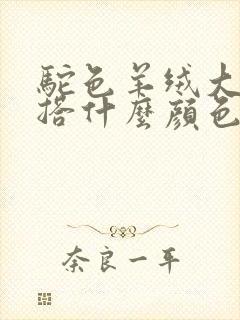 駝色羊绒大
搭什麼顔色
奈良一平